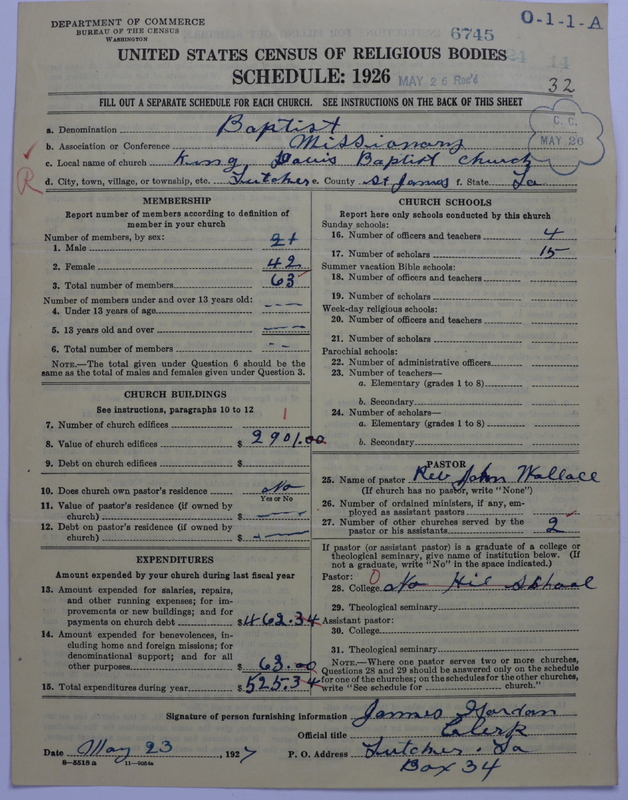 DEPARTMENT OF COMMERCE
BUREAU OF THE CENSUS
WASHINGTON
6745
O-1-1-A
UNITED STATES CENSUS OF RELIGIOUS BODIES
SCHEDULE: 1926
MAY 26 Rec'd
32
FILL OUT A SEPARATE SCHEDULE FOR EACH CHURCH. SEE INSTRUCTIONS ON THE BACK OF THIS SHEET
C. C.
MAY 26
a. Denomination Baptist
b. Association or Conference Missionary
c. Local name of church King Davis Baptist church
R
d. City, town, village, or township, etc. Lutcher e. County St James f. State La
MEMBERSHIP
Report number of members according to definition of
member in your church
Number of members, by sex:
1. Male 21
2. Female 42
3. Total number of members 63
Number of members under and over 13 years old:
4. Under 13 years of age
5. 13 years old and over
6. Total number of members
NOTE.—The total given under Question 6 should be the
same as the total of males and females given under Question 3.
CHURCH BUILDINGS
See instructions, paragraphs 10 to 12
7. Number of church edifices 1
8. Value of church edifices $ 2901.00
9. Debt on church edifices $
10. Does church own pastor's residence No
Yes or No
11. Value of pastor's residence (if owned by
church) $
12. Debt on pastor's residence (if owned by
church) $
EXPENDITURES
Amount expended by your church during last fiscal year
13. Amount expended for salaries, repairs,
and other running expenses; for im-
provements or new buildings; and for
payments on church debt $ 462.34
14. Amount expended for benevolences, in-
cluding home and foreign missions; for
denominational support; and for all
other purposes $ 63.00
15. Total expenditures during year $ 525.34
CHURCH SCHOOLS
Report here only schools conducted by this church
Sunday schools:
16. Number of officers and teachers 4
17. Number of scholars 15
Summer vacation Bible schools:
18. Number of officers and teachers
19. Number of scholars
Week-day religious schools:
20. Number of officers and teachers
21. Number of scholars
Parochial schools:
22. Number of administrative officers
23. Number of teachers—
a. Elementary (grades 1 to 8)
b. Secondary
24. Number of scholars—
a. Elementary (grades 1 to 8)
b. Secondary
PASTOR
25. Name of pastor Rev John Wallace
(If church has no pastor, write "None")
26. Number of ordained ministers, if any, em-
ployed as assistant pastors
27. Number of other churches served by the
pastor or his assistants 2
If pastor (or assistant pastor) is a graduate of a college or
theological seminary, give name of institution below. (If
not a graduate, write "No" in the space indicated.)
Pastor: 0
28. College No Hie School
29. Theological seminary
Assistant pastor:
30. College
31. Theological seminary
NOTE.—Where one pastor serves two or more churches,
Questions 28 and 29 should be answered only on the schedule
for one of the churches; on the schedules for the other churches,
write "See schedule for church."
Signature of person furnishing information James Gordan
Official title Clerk
Date May 23, 1927 P. O. Address Lutcher. La
Box 34
8—5518 a 11—9054a